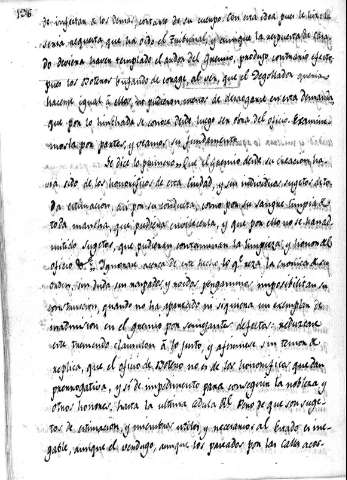 126
se injertan a los demas contrario de su cuerpo. Con esta idea pues se hizo la
seria respuesta que ha oido el Tribunal, y aunque la respuesta
deviera haver templado el ardor del Gremio, produjo contrario efecto
pues los Boteros jugando de corage al ver, que el Degollador queria
hacerse igual à ellos, no pudieron menos de desatarse en esta demanda
que por lo hinchada se conoce desde luego ser obra del oficio. Examine-
mosla por partes, y veamos su fundamento.
Se dice lo primero = Que el Gremio desde su creacion ha-
via sido de los honorificos de esta Ciudad, y sus individuos sugetos de to-
da estimacion, asi por su conducta, como por su sangre limpia de
toda mancha, que pudiera envilecerla, y que por ello no se han ad-
mitido sugetos, que pudieran contaminar la limpieza, y honor al
oficio &.ª Ignorase acerca de este hecho lo q.e reza la cronica de su
orden, sin duda sus arrapados, y roidos pergaminos imposibilitan su
construccion, quando no ha aparecido ni siquiera un exemplar de
inadmision en el gremio por semejantes defectos: reduzcase
este tremendo clausulon à lo justo, y afirmese sin temor de
replica, que el oficio de Botero no es de los honorificos que dan
prerrogativa, y si de impedimento para conseguir la nobleza y
otros honores, hasta la ultima cedula R.l Pero de que son suge-
tos de estimacion, y miembros utiles, y necesarios al Estado es ine-
gable, aunque el verdugo, aunque los paseados por las Calles acos-